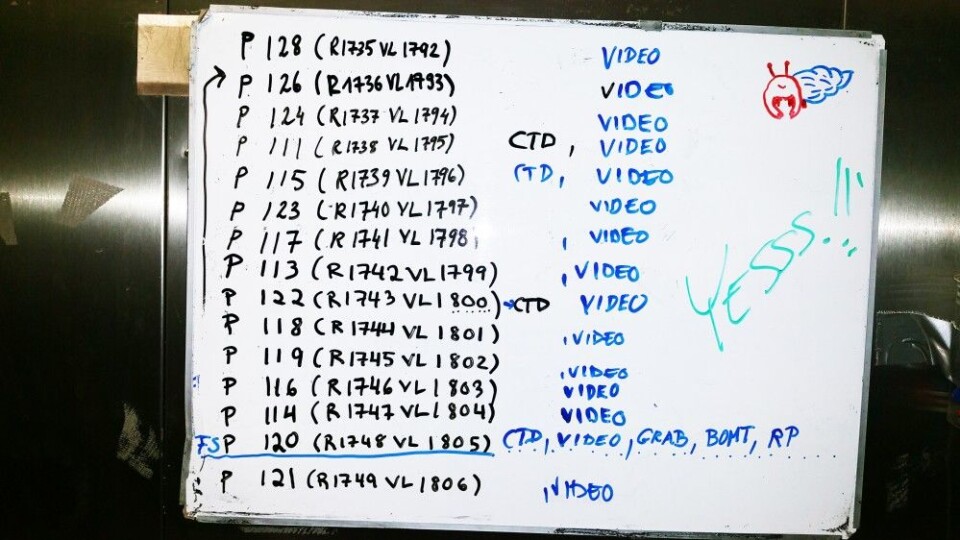 P 128 (R1735 VL 1792) VIDEO
P 126 (R1736 VL1793) VIDEO
P 124 (R1737 VL 1794) VIDEO
P 111 (R1738 VL 1795) CTD, VIDEO
P 115 (R1739 VL 1796) CTD, VIDEO
P 123 (R1740 VL 1797) VIDEO
P 117 (R1741 VL 1798) , VIDEO
P 113 (R1742 VL 1799) , VIDEO
P 122 (R1743 VL 1800) CTD VIDEO
P 118 (R1744 VL 1801) , VIDEO
P 119 (R1745 VL 1802) , VIDEO
P 116 (R1746 VL 1803) VIDEO
P 114 (R1747 VL 1804) VIDEO
FS P 120 (R1748 VL 1805) CTD, VIDEO, GRAB, BOMT, RP
P 121 (R1749 VL 1806) , VIDEO
YESSS...!!